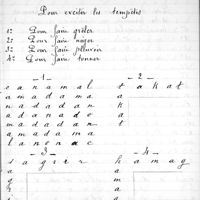 Pour exciter les tempêtes
1: Pour faire grêler
2: Pour faire neiger
3: Pour faire pleuvoir
4: Pour faire tonner
1
c a n a m a l
a m a d a m a
n a d a d a n
a d a n a d a
m a d a d a n
a m a d a m a
l a n a n a c
2
t a k a t
a
k
a
t
3
s a g r i r
a
4
h a m a g
a
m
a